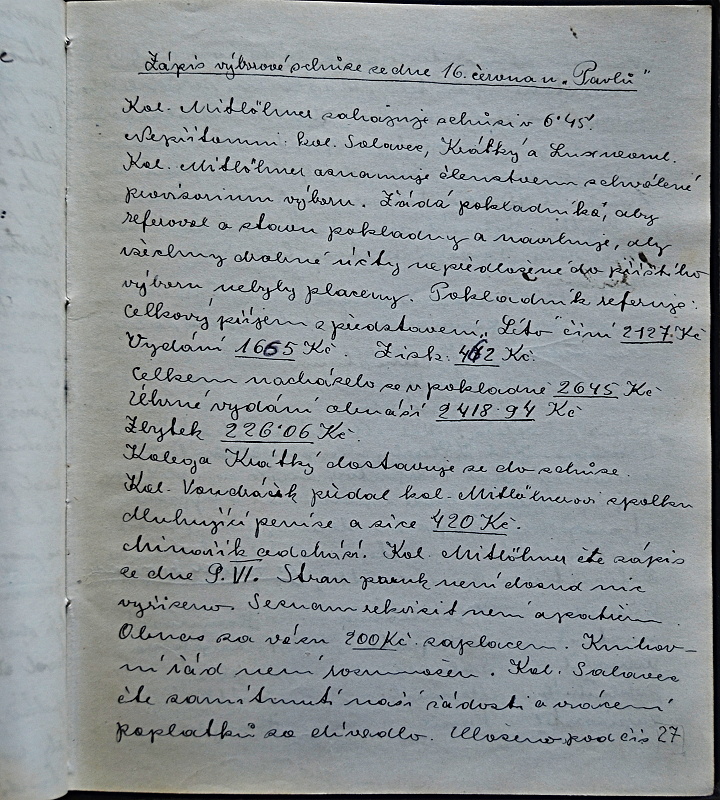 Zápis výborové schůze ze dne 16. června u „Pavlů"
Kol. Mitlöhner zahajuje schůzi v 6·45'.
Nepřítomni: kol. Salavec, Krátký a Luxneoml.
Kol. Mitlöhner oznamuje členstvem schválené
provisorium výboru. Žádá pokladníka, aby
referoval o stavu pokladny a navrhuje, aby
všechny drobné účty nepředložené do příštího
výboru nebyly placeny. Pokladník referuje:
Celkový příjem z představení „Léto" činí 2127 Kč
Vydání 1665 Kč. Zisk: 462 Kč.
Celkem nacházelo se v pokladně 2645 Kč
Úhrné vydání obnáší 2418·94 Kč
Zbytek 226·06 Kč.
Kolega Krátký dostavuje se do schůze.
Kol. Vondráček předal kol. Mitlöhnerovi spolku
dlužující peníze a sice 420 Kč.
Minařík odchází. Kol. Mitlöhner čte zápis
ze dne 9. VI. Stran paruk není dosud nic
vyřízeno. Seznam rekvisit není opatřen.
Obnos za vázu 200 Kč zaplacen. Knihov-
ní řád není rozmnožen. Kol. Salavec
čte zamítnutí naší žádosti o vrácení
poplatků za divadlo. Uloženo pod čís 27